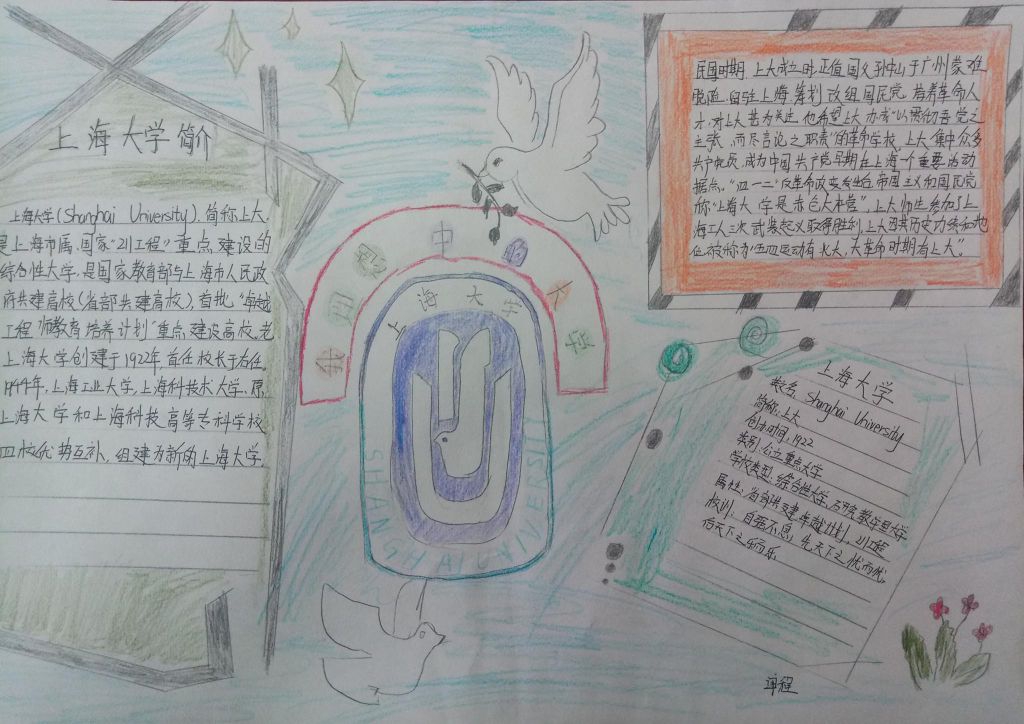 上海大学简介
上海大学(Shanghai University),简称上大,
是上海市属、国家"211工程"重点建设的
综合性大学,是国家教育部与上海市人民政
府共建高校(省部共建高校),首批"卓越
工程师教育培养计划"重点建设高校。老
上海大学创建于1922年,首任校长于右任。
1994年,上海工业大学,上海科技术大学、原
上海大学和上海科技高等专科学校
四校优势互补,组建为新的上海大学。
我理中的大学
上海大学
SHANGHAI UNIVERSITY
民国时期,上大成立时,正值国父孙中山于广州蒙难
脱险,留驻上海筹划改组国民党,培养革命人
才,对上大甚为关注,他希望上大办成"以贯彻吾党之
主张,而尽言论之职责"的革命学校。上大集中众多
共产党员,成为中国共产党早期在上海一个重要活动
据点。"四一二"反革命政变发生后,帝国主义和国民党
称"上海大学是赤色大本营",上大师生参加了上
海工人三次武装起义取得胜利,上大因其历史功绩和地
位被称为"五四运动有北大,大革命时期有上大"。
上海大学
校名:Shanghai University
简称:上大
创办时间:1922
类别:公立重点大学
学校类型:综合性大学,研究教学型大学
属性:省部共建 卓越计划,211工程
校训:自强不息;先天下之忧而忧,
后天下之乐而乐
课程